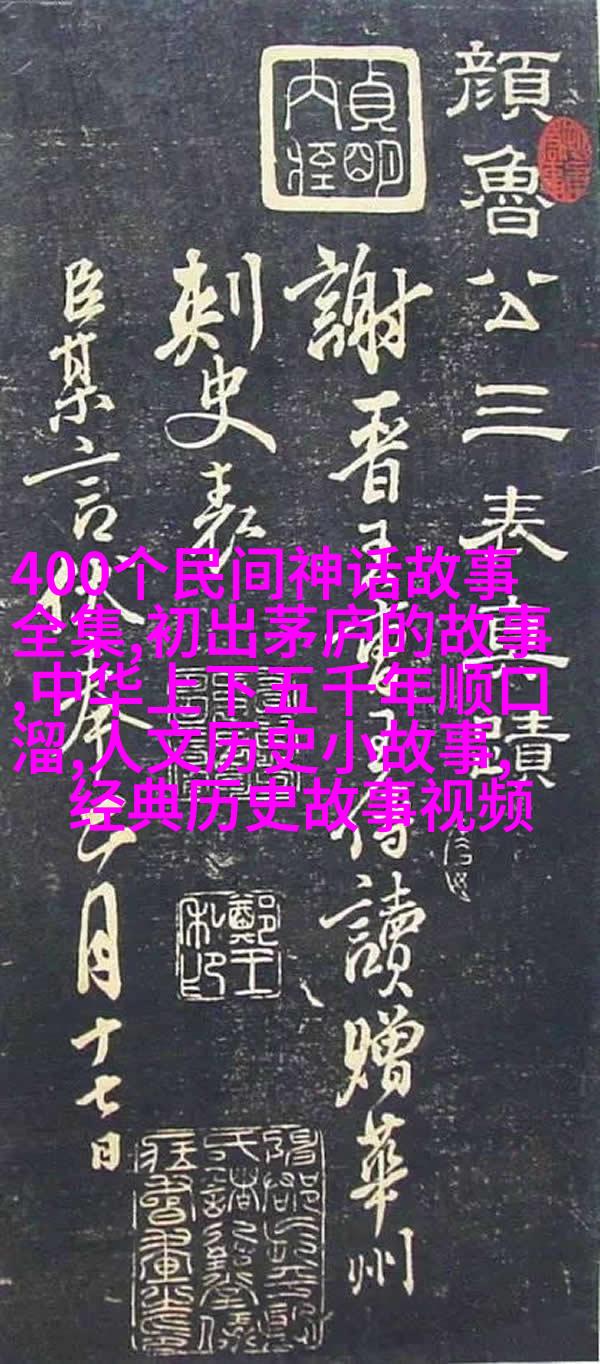 顏魯公三表真蹟
謝晉 讀贈華州
刺史表
臣某言伏奉 月十七日
400个民间神话故事
全集,初出茅庐的故事
,中华上下五千年顺口
溜,人文历史小故事,
经典历史故事视频